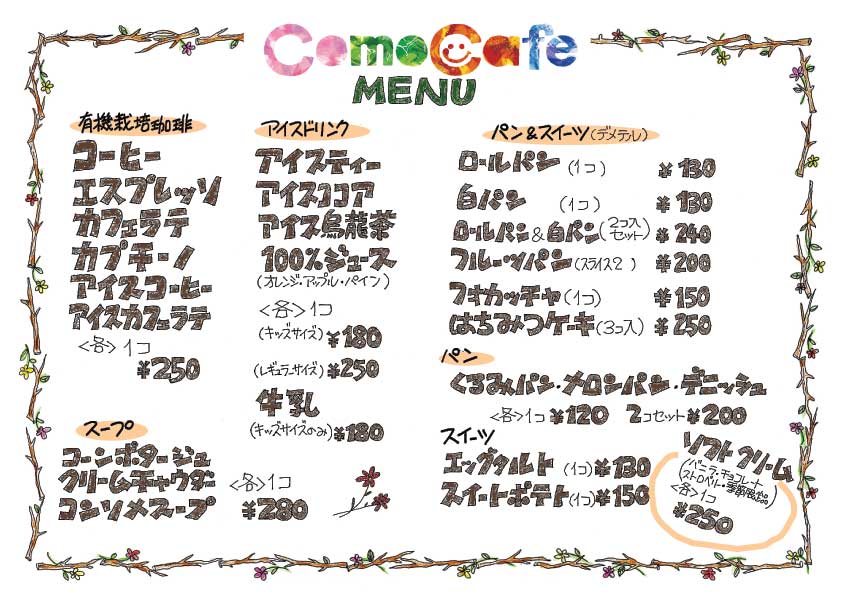 ComoCafe
MENU
有機栽培珈琲
コーヒー
エスプレッソ
カフェラテ
カプチーノ
アイスコーヒー
アイスカフェラテ
<各>1コ
¥250
スープ
コーンポタージュ
クリームチャウダー
コンソメスープ
<各>1コ
¥280
アイスドリンク
アイスティー
アイスココア
アイス烏龍茶
100%ジュース
(オレンジ・アップル・パイン)
<各>1コ
(キッズサイズ)¥180
(レギュラーサイズ)¥250
牛乳
(キッズサイズのみ)¥180
パン&スイーツ(デメテル)
ロールパン(1コ) ¥130
白パン(1コ) ¥130
ロールパン&白パン(2コ入セット) ¥240
フルーツパン(スライス2) ¥200
フォカッチャ(1コ) ¥150
はちみつケーキ(3コ入) ¥250
パン
くるみパン・メロンパン・デニッシュ
<各>1コ¥120 2コセット¥200
スイーツ
エッグタルト(1コ)¥130
スイートポテト(1コ)¥150
ソフトクリーム
(バニラ・チョコレート
ストロベリー・季節限定)
<各>1コ
¥250